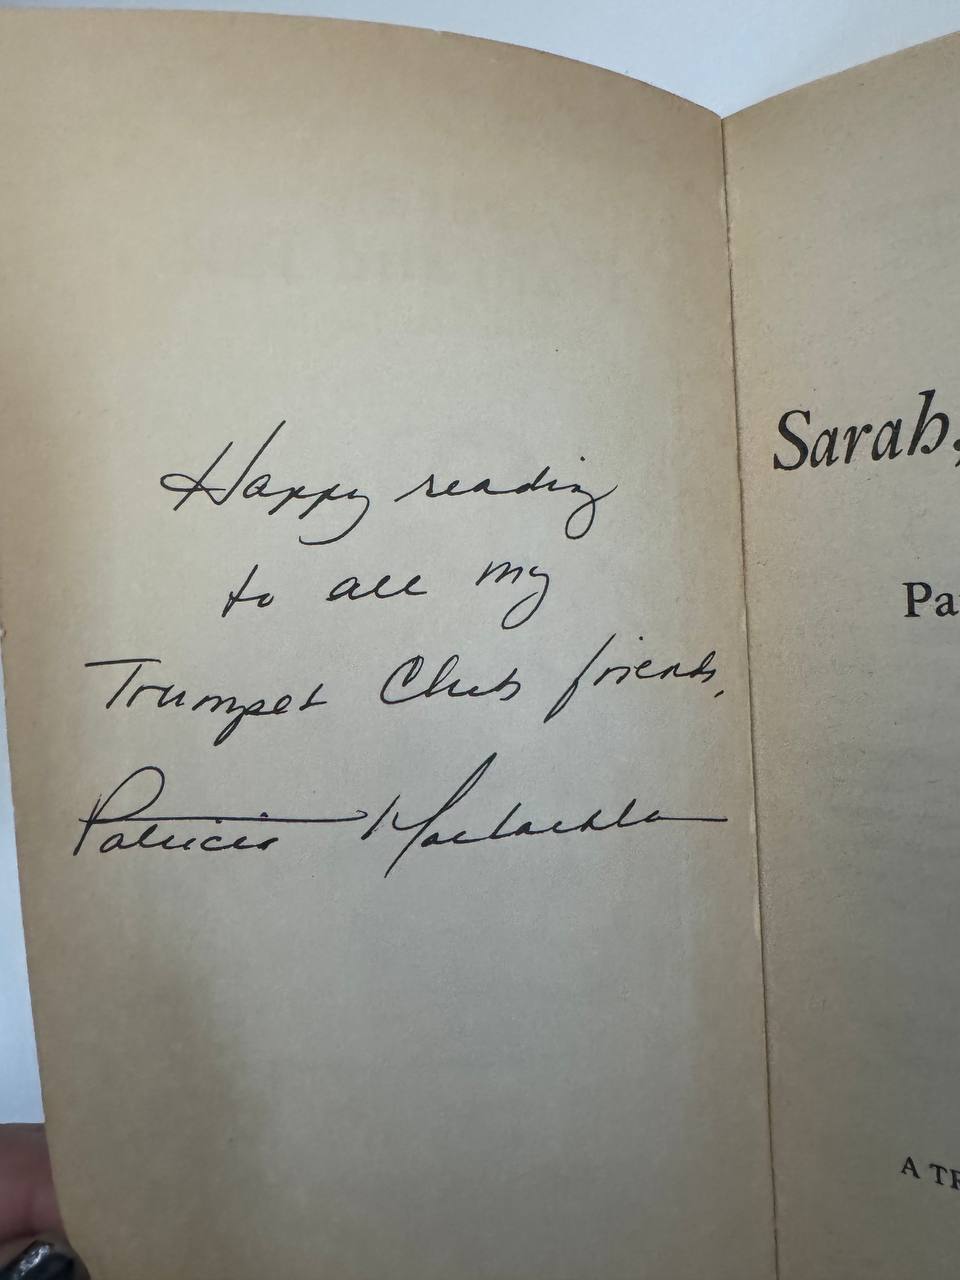 Happy reading
to all my
Trumpet Club friends,
Patricia MacLachlan
Sarah,
Pa
A TR